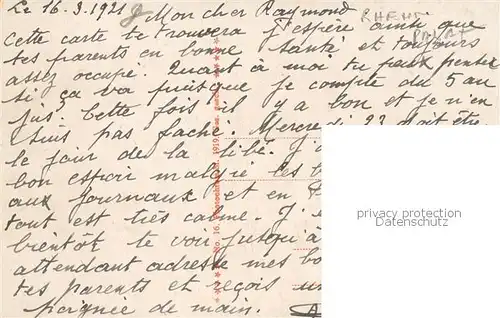 Le 16.3.1921 Mon cher Raymond
RHEN
Cette carte te trouvera j'espère ainsi que
tes parents en bonne santé et toujours
assez occupé. Quant à moi tu peux penser
si ça va puisque je compte du 5 au
jus. Cette fois il y a bon et je n'en
suis pas faché. Mercredi 23 doit être
le jour de la libé. J'
bon espoir malgré les b
aux journaux et en
tout est très calme. J'
bientôt te voir jusqu'à
attendant adresse mes bo
tes parents et reçois un
poignée de main.
No. 16. 1919.
privacy protection
Datenschutz